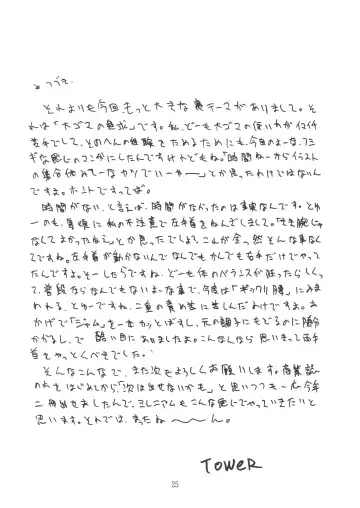 と、つづき。
それよりも今回もっと大きな裏テーマがありまして。そ
れは「大ゴマの追求」です。私、どーも大ゴマの使い方がイマイチ
苦手でして、そのへんの経験をためるためにも、今回のよーな、フシ
ギな感じのマンガにしたんですけれどもね。「時間ねーからイラスト
の集合体みてーなカンジでいーやー」とか思ったわけではないん
ですよ。ホントですってば。
時間がない、と言えば、時間がなかったのは事実なんです。とゆ
ーのも、直前に私の不注意で左手首をねんざしまして。「きき腕じゃ
なくてよかったねえ」とか思ったでしょ。これが全っ然そんな事なく
てですね。左手首が動かないんでなんでもかんでも右手だけでやって
たんですよ。そーしたらですね、どーも体のバランスが狂ったらしくっ
て、普段ならなんでもないよーな事で、今度は「ギックリ腰」にみま
われる、とゆーですね、二重の責め苦に苦しんだわけですよ。お
かげで「ジャム」を一本カッとばすし、元の調子にもどるのに随分
かかるし、で 酷い目にありましたよ。こんなんなら思いきって左手
首をやっとくべきでした。
そんなこんなで、また次もよろしくお願いします。商業誌
のをはじめてから「次は出せないかも」と思いつつも一応今年
二冊出せましたんで、ミレニアムもこんな感じでやっていきたいと
思います。それでは、またね〜〜ん。
TOWER
25